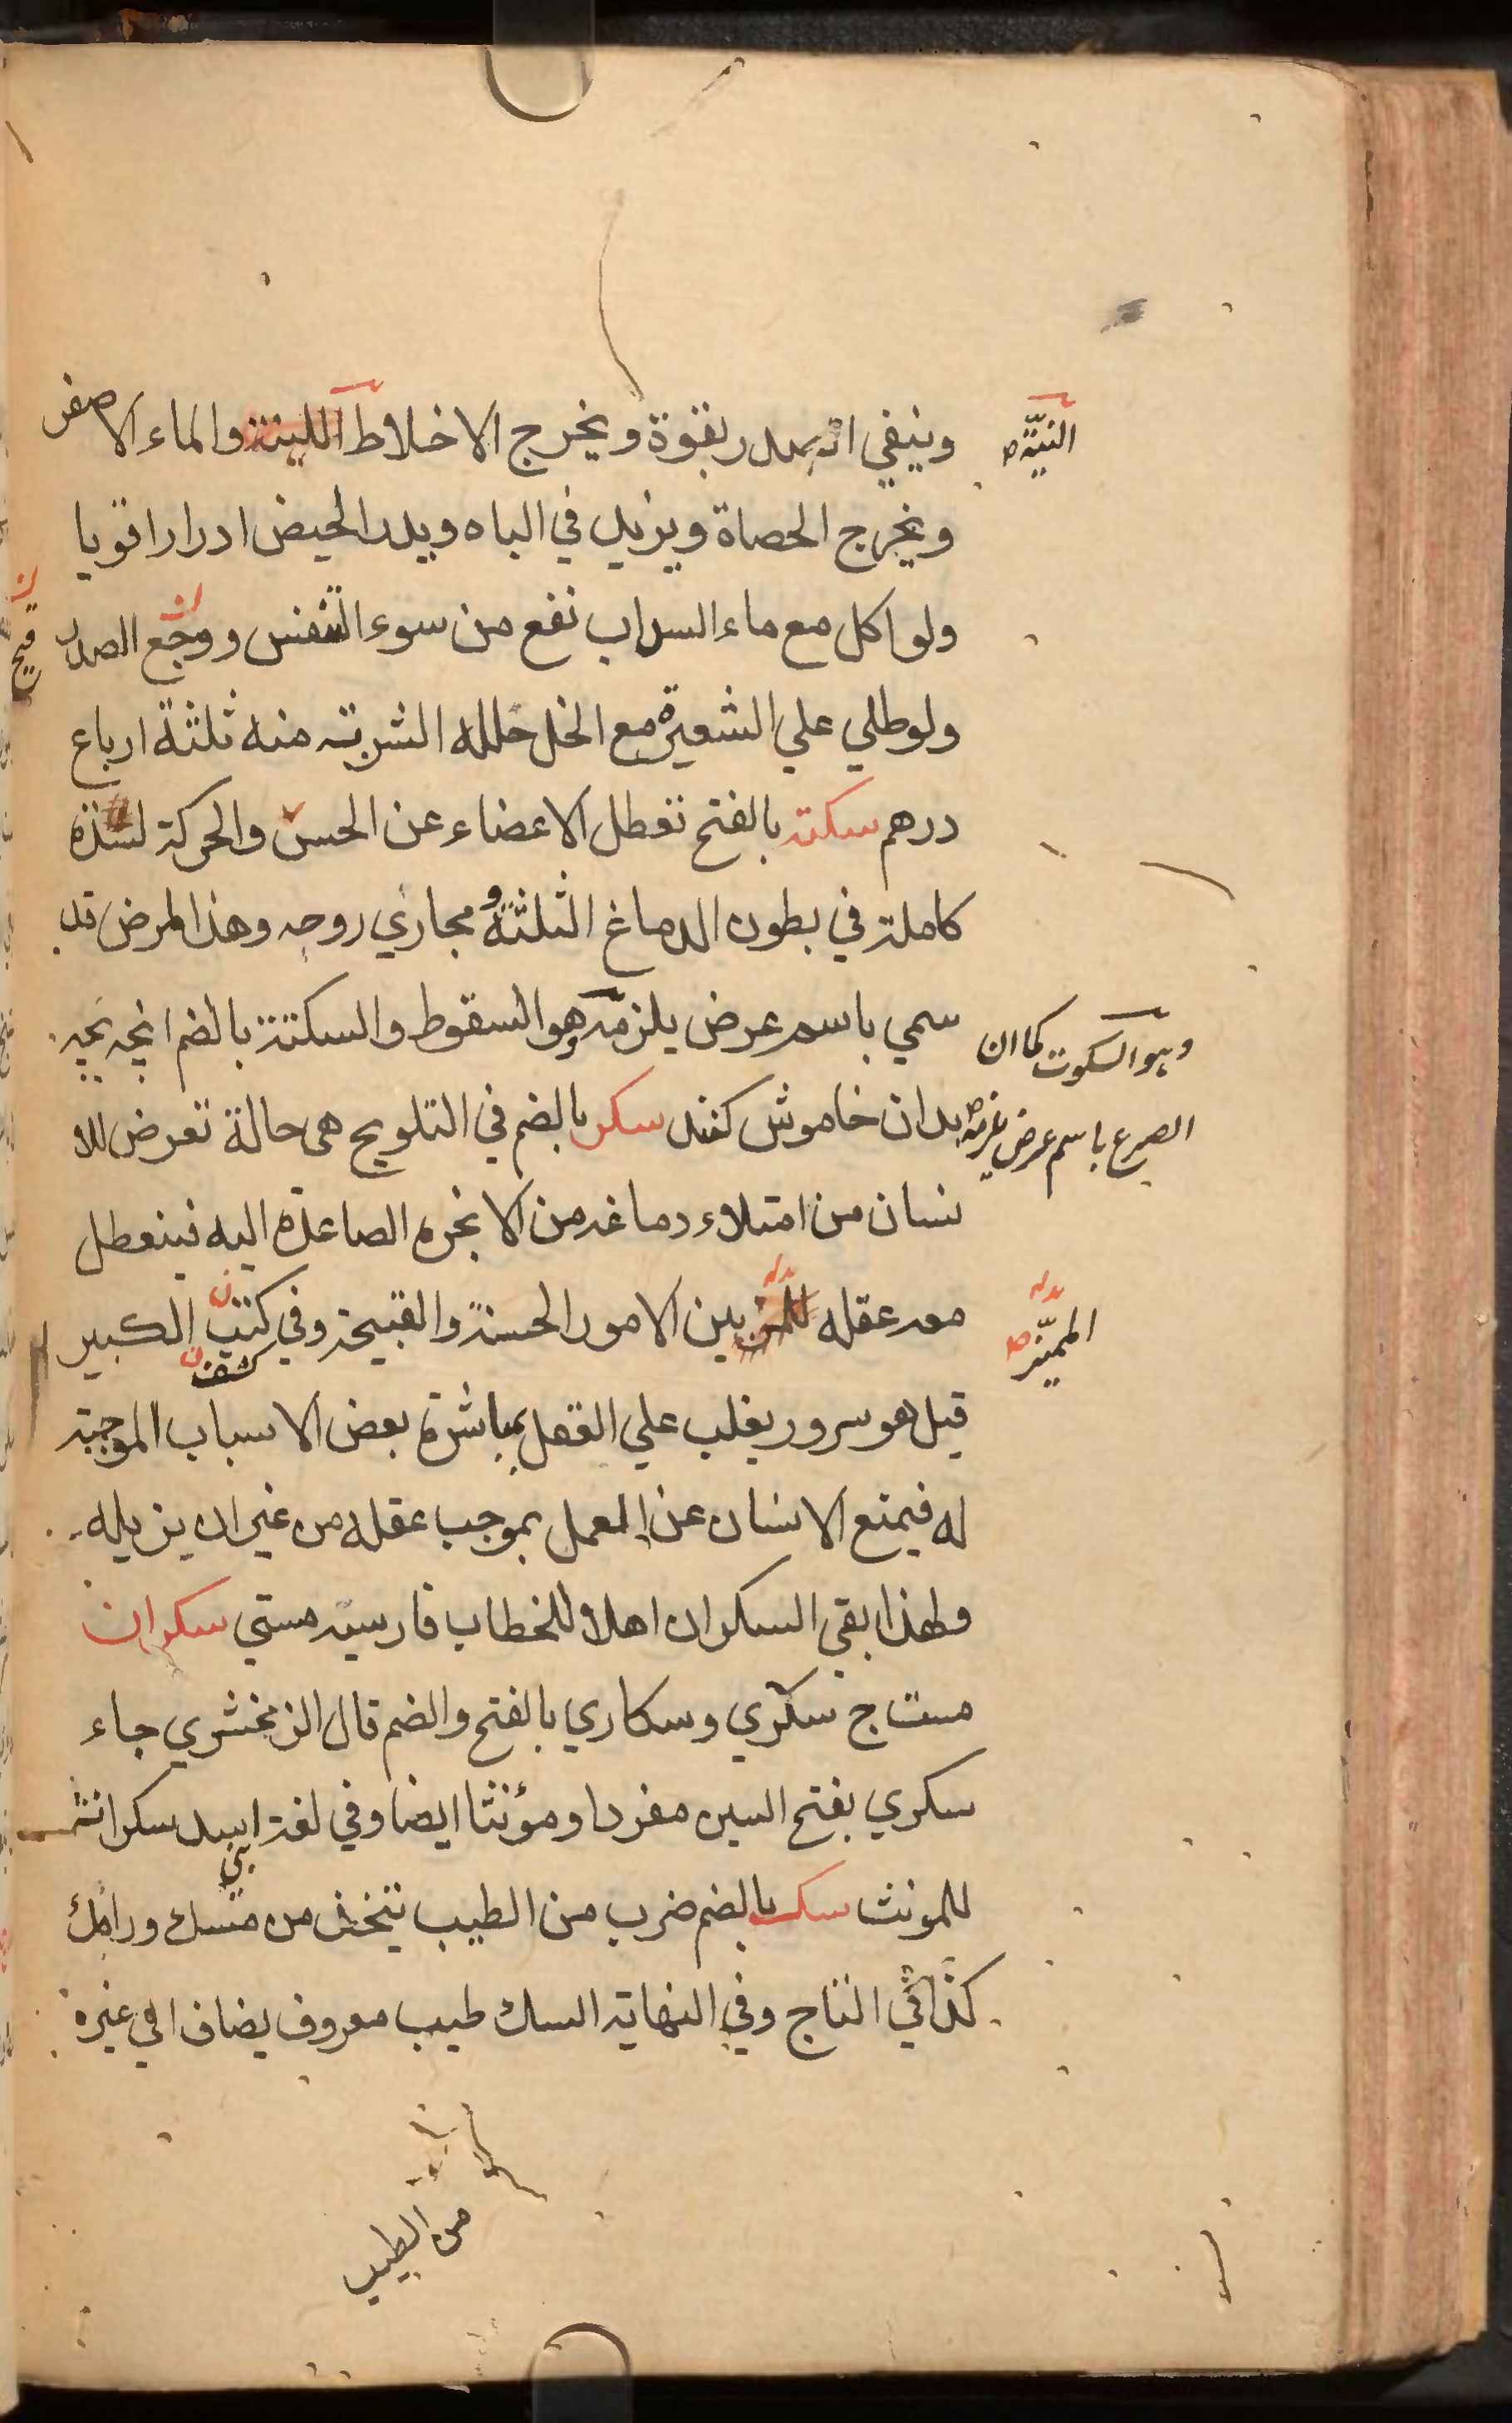 وينيفي انه يدر بقوة ويخرج الاخلاط اللينة والماء الاصفر
النيّة
ويخرج الحصاة ويزيد في الباه ويدر الحيض ادرارا قويا
ولو اكل مع ماء السداب نفع من سوء التنفس ووجع الصدر
ولو طلي علي الشعيرة مع الخل حلله الشربته منه ثلثة ارباع
درهم سكته بالفتح تعطل الاعضاء عن الحس والحركة لسدة
كاملة في بطون الدماغ الثلثة و مجاري روحه وهذا المرض قد
سمي باسم عرض يلزمه هو السقوط والسكتة بالضم انچه بچه
وهو السكوت كما ان
الصرع باسم عرض يلزمه
بدان خاموش كنند سكر بالضم في التلويح هي حالة تعرض للا
نسان من امتلاء دماغه من الابخرة الصاعدة اليه فيتعطل
معه عقله بين الامور الحسنة والقبيحة وفي كتب الكبير
المميّز
كشف
قيل هو سرور يغلب علي العقل بمباشرة بعض الاسباب الموجبة
له فيمنع الانسان عن العمل بموجب عقله من غير ان يزيله
ولهذا بقي السكران اهلا للخطاب فارسيه مستي سكران
مست ج سكري وسكاري بالفتح والضم قال الزمخشري جاء
سكري بفتح السين مفردا ومؤنثا ايضا وفي لغة اسد سكرانة
للمونث سك بالضم ضرب من الطيب يتخذ من مسك ورامك
كذا في التاج وفي النهاية السك طيب معروف يضاف الي غيره
من الطيب